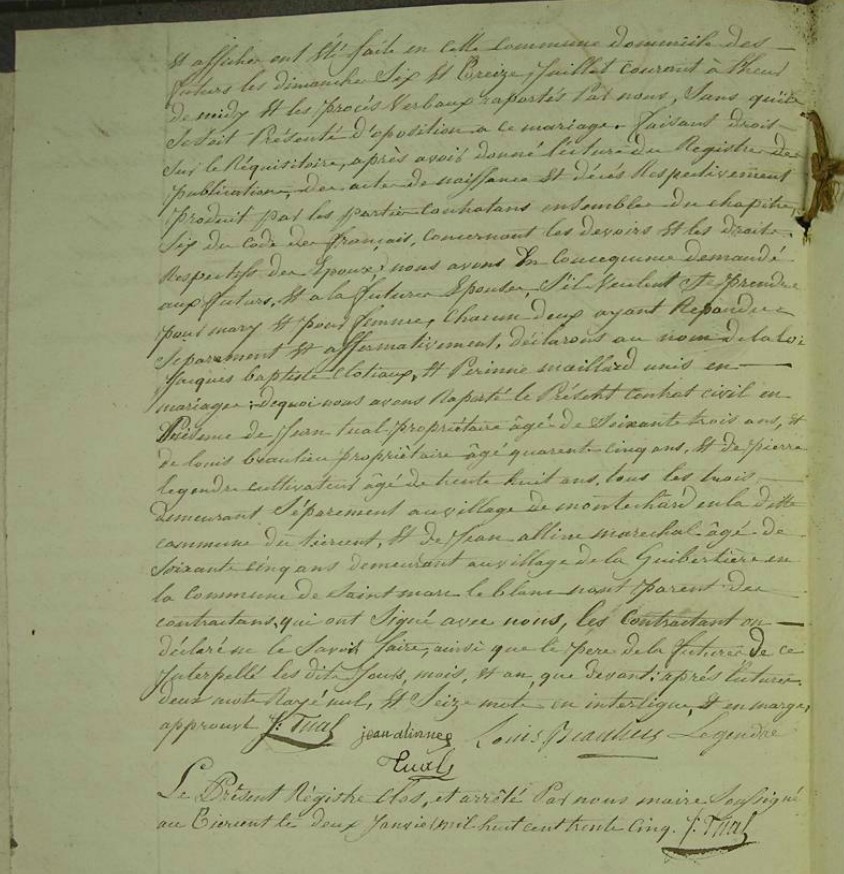 et affiches ont été faite en cette commune domicile des
futurs les dimanche six et treize juillet courant à l'heure
de midy et les procès verbaux raportés par nous, sans qu'il
se soit présenté d'oposition a ce mariage. faisant droit
sur le Réquisitoire, après avoir donné lecture du Registre de
publication, des acte de naissance et décés Respectivement
produit par les partie contratans ensembles du chapitre
six du code des français, concernant les devoirs et les droits
Respectifs des Epoux, nous avons En concequence demandé
aux futurs, et a la future Epouse, s'il veulent se prendre
pour mary et pour femme, chacun deux ayant Repondu
séparement et affermativement, déclarons au nom de la loi
Jacques baptiste Clotiaux, et Perinne maillard unis en
mariage; dequoi nous avons Raporté le Présent contrat civil en
Présence de Jean tual propriétaire âgé de soixante trois ans, et
de louis beaulieu propriétaire âgé quarente cinq ans, et de pierre
legendre cultivateur âgé de trente huit ans, tous les trois
demeurant séparement au village de en la ditte
commune du tiercent, et de Jean alline marechal âgé de
soixante cinq ans demeurant au village de la Guibertiere en
la commune de Saint marc le blanc nont parent des
contractans, qui ont signé avec nous, les contractant on
déclaré ne le savoir faire, ainsi que le pere de la future de ce
Interpellé les dits jours, mois, et an que devant: après lecture
deux mote Rayé nul, et Seize mote en interligne, et en marge,
approuvé J: Tual jean aliane Louis Beaulieu Legendre
Tual
Le Présent Régistre clos, et arrôté Par nous maire soussigné
au Tiercent le deux Janvier mil huit cent trente cinq. J: Tual